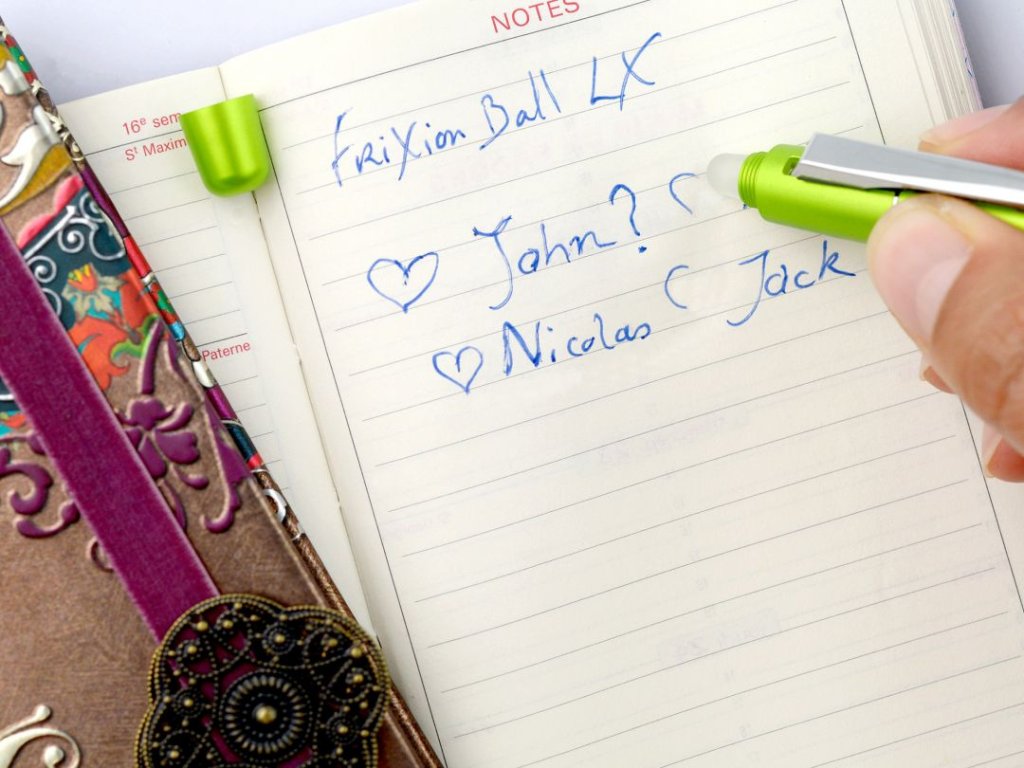 NOTES
16e sem
St Maxim
Paterne
FriXion Ball LX
♡ John? (
♡ Nicolas ( Jack